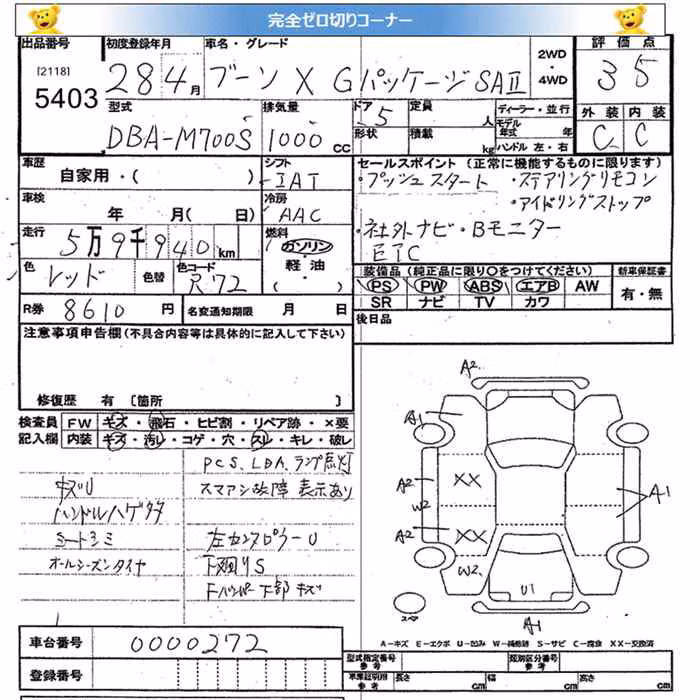 完全ゼロ切りコーナー
出品番号 初度登録年月 車名・グレード 2WD・4WD 評価点
[2118] 5403 28 4月 ブーン X Gパッケージ SAⅡ 3 5
型式 排気量 ドア 定員 人 ディーラー・並行 外装 内装
DBA-M700S 1000cc 5 形状 積載 kg モデル年式 年 ハンドル 左・右 C C
車歴 シフト セールスポイント (正常に機能するものに限ります)
自家用・( ) IAT ・プッシュスタート ・ステアリングリモコン
車検 冷房 ・アイドリングストップ
年 月( 日) AAC
走行 燃料 ・社外ナビ・Bモニター
5万9千940km ガソリン ETC
色 色替 色コード 軽油 装備品 (純正品に限り○をつけてください) 新車保証書
レッド R72 ・( ) PS PW ABS エアB AW 有・無
R券 8610円 名変通知期限 月 日 SR ナビ TV カワ
注意事項申告欄(不具合内容等は具体的に記入して下さい) 後日品
修復歴 有 [箇所 ]
検査員 FW キズ・飛石・ヒビ割・リペア跡・×要
記入欄 内装 キズ・汚レ・コゲ・穴・スレ・キレ・破レ
PCS、LDA、ランプ点灯
内ズU スマアシ故障 表示あり
ハンドルハゲタタ
シートシミ 左カンタロラーU
オールシーズンタイヤ 下廻りS
Fバンパー下部キズ
A2
A1
A2 XX A1
W2
A2 XX
W2 U1
スペア A1
A-キズ E-エクボ U-凹み W-補修跡 S-サビ C-腐食 XX-交換済
車台番号 0000272
登録番号
型式指定番号 参考 類別区分番号 参考
車庫証明用 参考 長さ cm 幅 cm 高さ cm